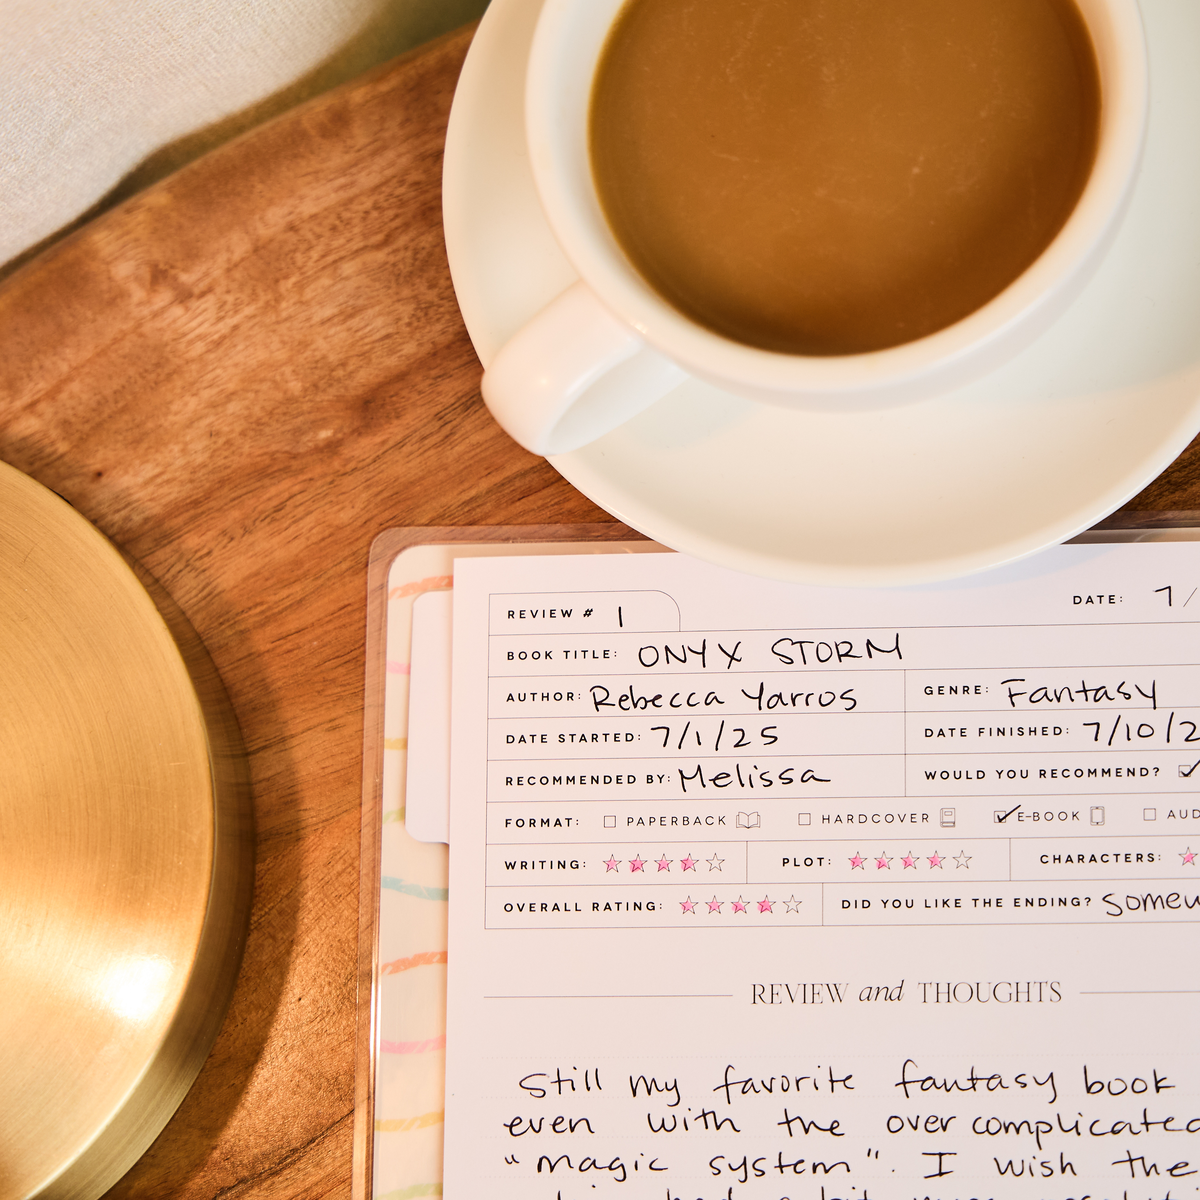 REVIEW # 1 DATE: 7/
BOOK TITLE: ONYX STORM
AUTHOR: Rebecca Yarros GENRE: Fantasy
DATE STARTED: 7/1/25 DATE FINISHED: 7/10/2
RECOMMENDED BY: Melissa WOULD YOU RECOMMEND?
FORMAT: PAPERBACK HARDCOVER E-BOOK AUD
WRITING: PLOT: CHARACTERS:
OVERALL RATING: DID YOU LIKE THE ENDING? somew
REVIEW and THOUGHTS
Still my favorite fantasy book
even with the overcomplicated
"magic system". I wish the